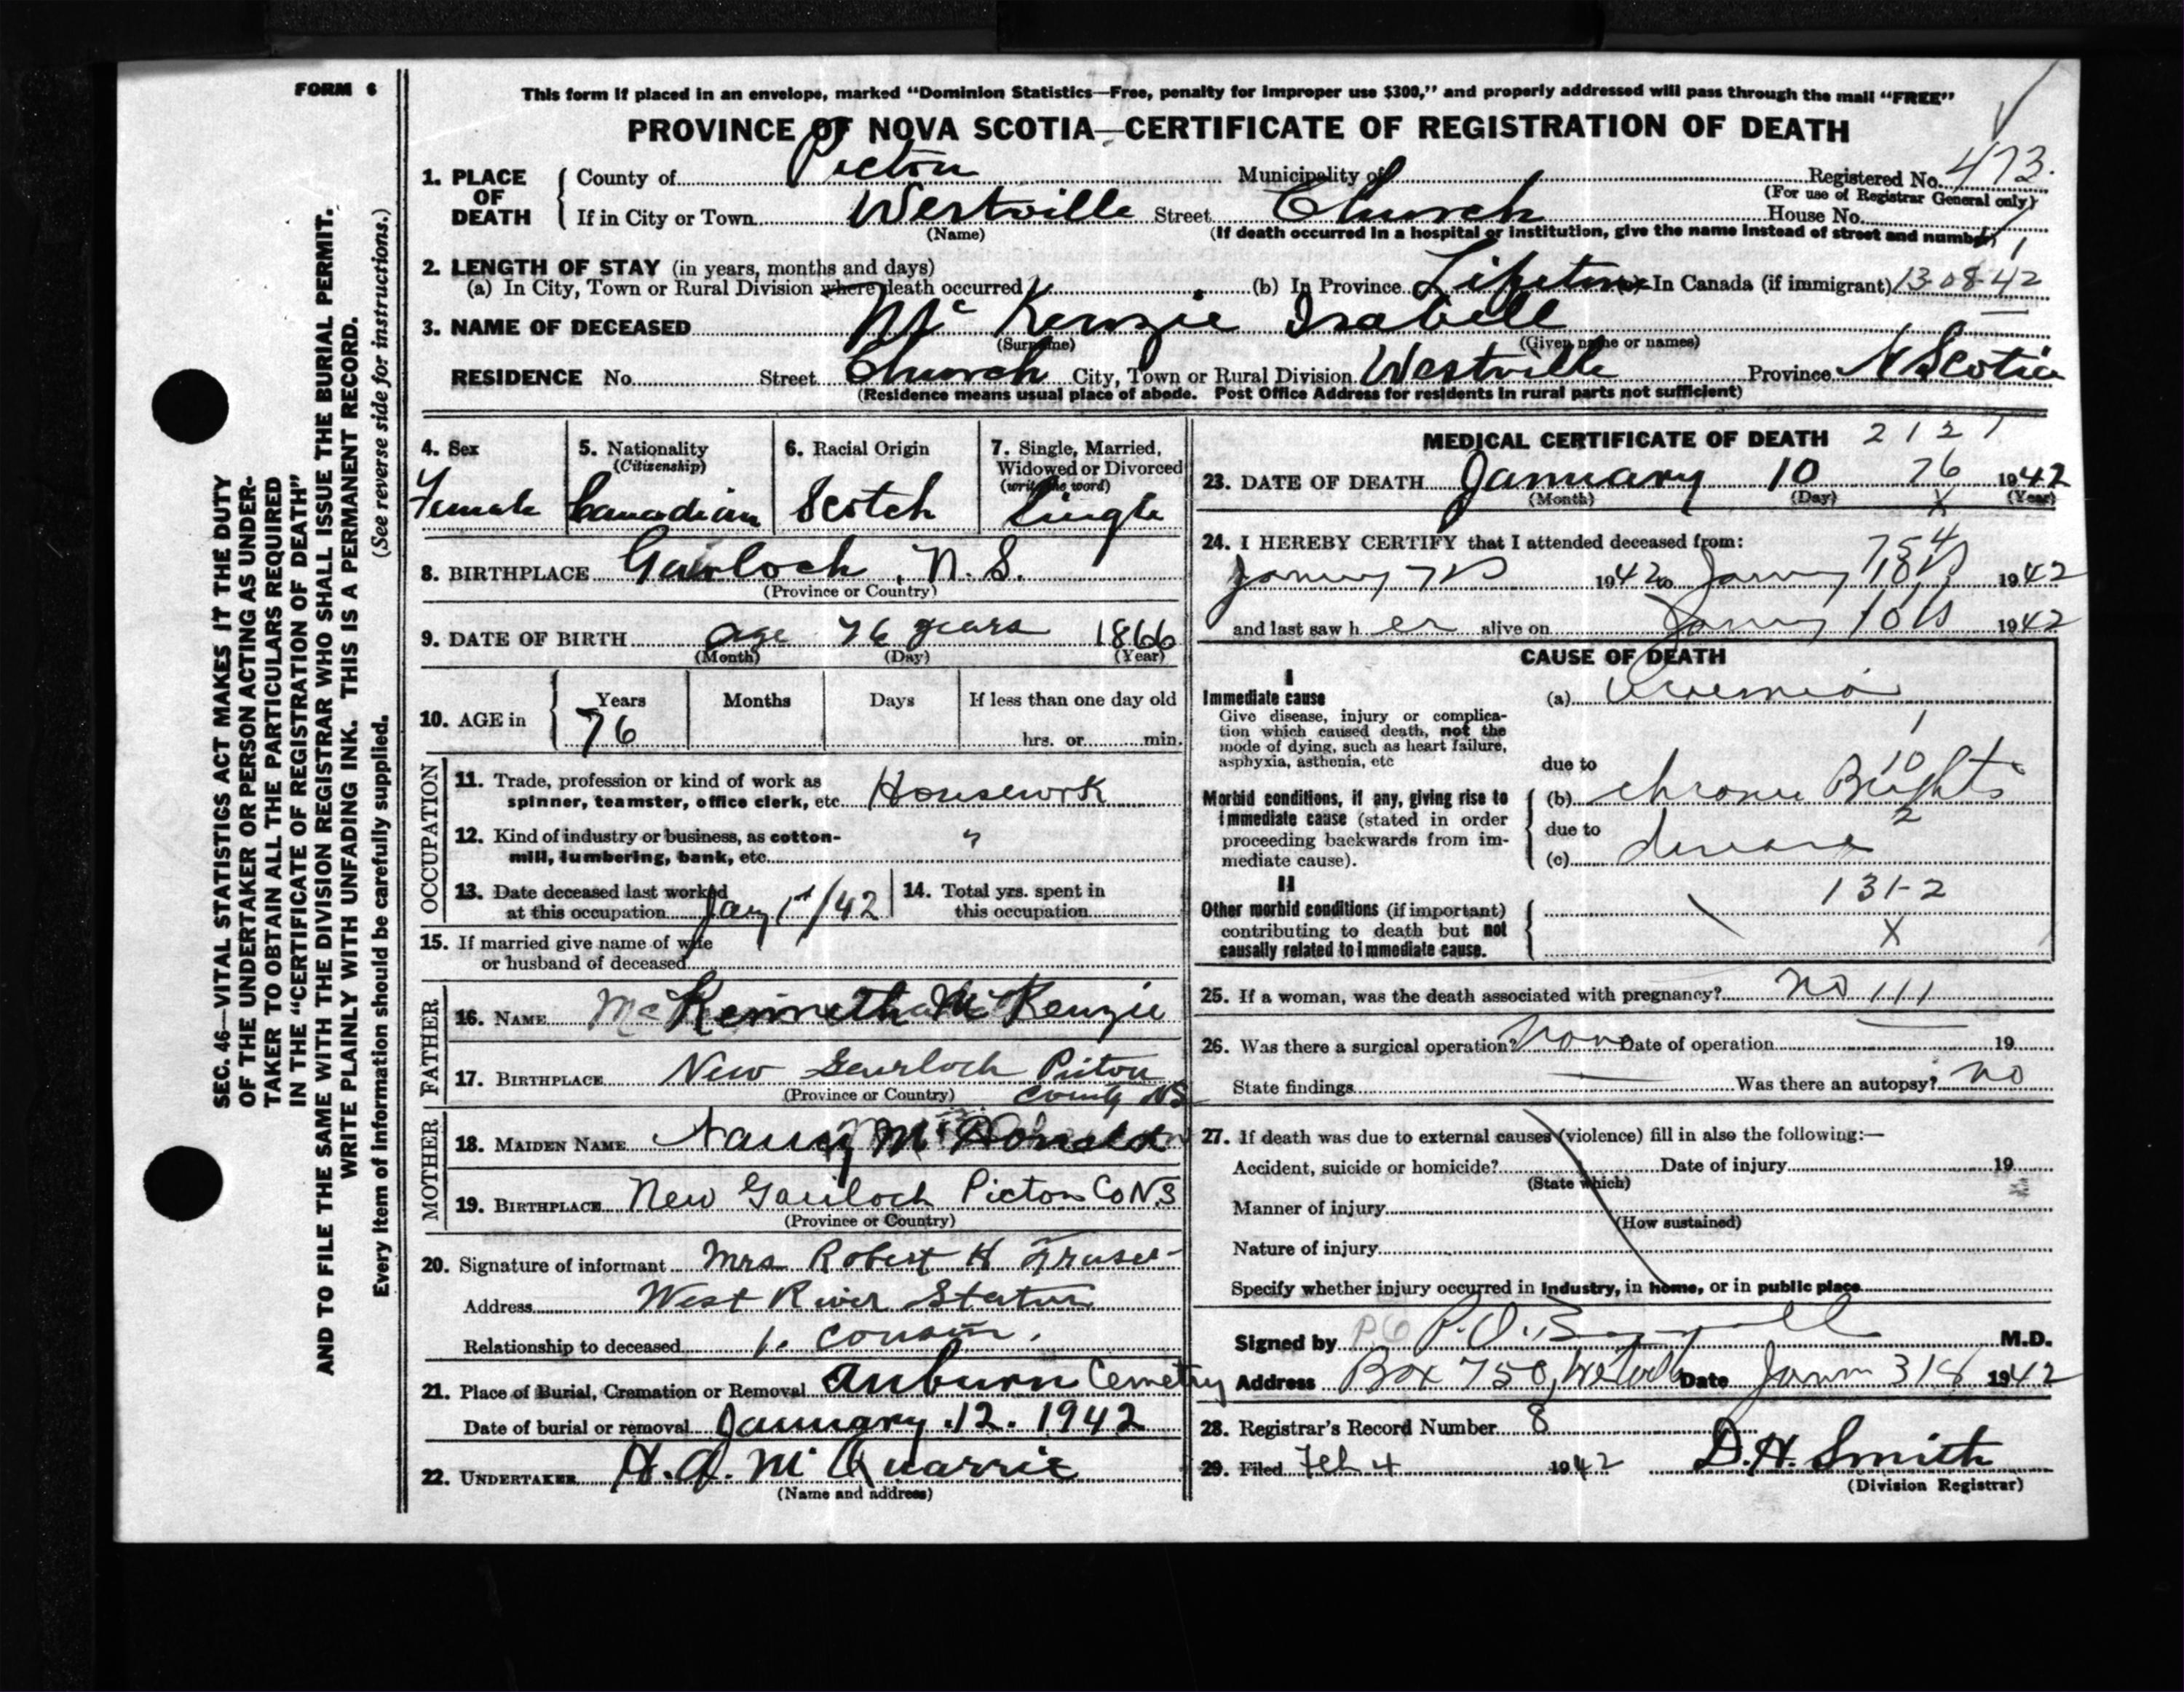 FORM 6
This form if placed in an envelope, marked "Dominion Statistics—Free, penalty for improper use $300," and properly addressed will pass through the mail "FREE"
PROVINCE OF NOVA SCOTIA—CERTIFICATE OF REGISTRATION OF DEATH
1. PLACE OF DEATH
County of Pictou Municipality of Registered No. 473.
(For use of Registrar General only)
If in City or Town Westville Street Church House No.
(Name) (If death occurred in a hospital or institution, give the name instead of street and number)
2. LENGTH OF STAY (in years, months and days)
(a) In City, Town or Rural Division where death occurred (b) In Province Lifetime (c) In Canada (if immigrant) 13-08-42
3. NAME OF DECEASED McKenzie Isabell
(Surname) (Given name or names)
RESIDENCE No. Street Church City, Town or Rural Division Westville Province N Scotia
(Residence means usual place of abode. Post Office Address for residents in rural parts not sufficient)
4. Sex
Female
5. Nationality
(Citizenship)
Canadian
6. Racial Origin
Scotch
7. Single, Married,
Widowed or Divorced
(write the word)
Single
8. BIRTHPLACE Gairloch, N.S.
(Province or Country)
9. DATE OF BIRTH age 76 years 1866
(Month) (Day) (Year)
10. AGE in
Years Months Days If less than one day old
76 hrs. or min.
OCCUPATION
11. Trade, profession or kind of work as
spinner, teamster, office clerk, etc. Housework
12. Kind of industry or business, as cotton-
mill, lumbering, bank, etc. "
13. Date deceased last worked
at this occupation Jany 1st/42
14. Total yrs. spent in
this occupation
15. If married give name of wife
or husband of deceased
FATHER
16. NAME Kenneth McKenzie
17. BIRTHPLACE New Gairloch Pictou
(Province or Country) County NS
MOTHER
18. MAIDEN NAME Nancy McDonald
19. BIRTHPLACE New Gairloch Pictou Co N.S
(Province or Country)
20. Signature of informant Mrs Robert H Fraser
Address West River Station
Relationship to deceased cousin.
21. Place of Burial, Cremation or Removal Auburn Cemetry
Date of burial or removal January 12. 1942
22. UNDERTAKER H. A. McQuarrie
(Name and address)
MEDICAL CERTIFICATE OF DEATH 2127
76
23. DATE OF DEATH January 10 1942
(Month) (Day) (Year)
X
24. I HEREBY CERTIFY that I attended deceased from:
754
1942 to 1942
and last saw h er alive on 10th 1942
CAUSE OF DEATH
I
Immediate cause
Give disease, injury or complica-
tion which caused death, not the
mode of dying, such as heart failure,
asphyxia, asthenia, etc
(a) Uraemia
1
due to 10
Morbid conditions, if any, giving rise to
immediate cause (stated in order
proceeding backwards from im-
mediate cause).
(b) chronic Brights
due to 2
(c) disease
II
131-2
Other morbid conditions (if important)
contributing to death but not
causally related to immediate cause.
X
25. If a woman, was the death associated with pregnancy? no 111
26. Was there a surgical operation? None Date of operation 19
State findings Was there an autopsy? no
27. If death was due to external causes (violence) fill in also the following:—
Accident, suicide or homicide? Date of injury 19
(State which)
Manner of injury
(How sustained)
Nature of injury
Specify whether injury occurred in industry, in home, or in public place
Signed by M.D.
Address Box 750, Date 1942
28. Registrar's Record Number 8
29. Filed Feb 4 1942 D.H. Smith
(Division Registrar)
SEC. 46—VITAL STATISTICS ACT MAKES IT THE DUTY
OF THE UNDERTAKER OR PERSON ACTING AS UNDER-
TAKER TO OBTAIN ALL THE PARTICULARS REQUIRED
IN THE "CERTIFICATE OF REGISTRATION OF DEATH"
AND TO FILE THE SAME WITH THE DIVISION REGISTRAR WHO SHALL ISSUE THE BURIAL PERMIT.
WRITE PLAINLY WITH UNFADING INK. THIS IS A PERMANENT RECORD.
Every item of information should be carefully supplied. (See reverse side for instructions.)